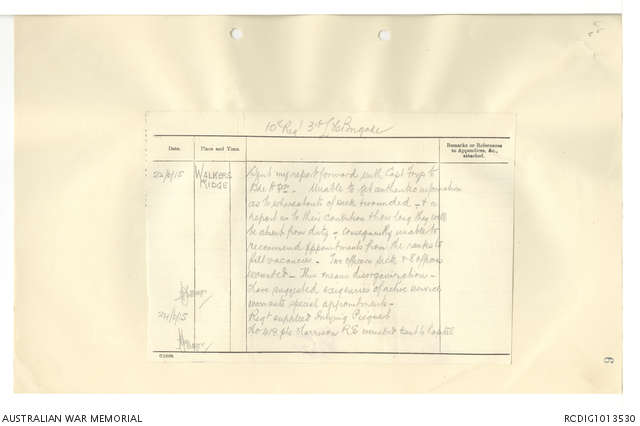 10th Regt 3rd L H Brigade
Date. Place and Time. Remarks or References to Appendices, &c., attached.
22/6/15 WALKERS RIDGE
Sent my report forward with Capt to
Bde H Qrs - Unable to get authentic information
as to whereabouts of sick & wounded - & a
report as to their condition & how long they will
be absent from duty - Consequently unable to
recommend appointments from the ranks to
fill vacancies - Two officers sick & 8 officers
wounded - This means disorganization -
Have suggested exigencies of active service
warrants special appointments -
24/6/15
Regt supplied Inlying Picquet
No Pte Harrison R E wounded sent to Hospital
6
AUSTRALIAN WAR MEMORIAL
RCDIG1013530